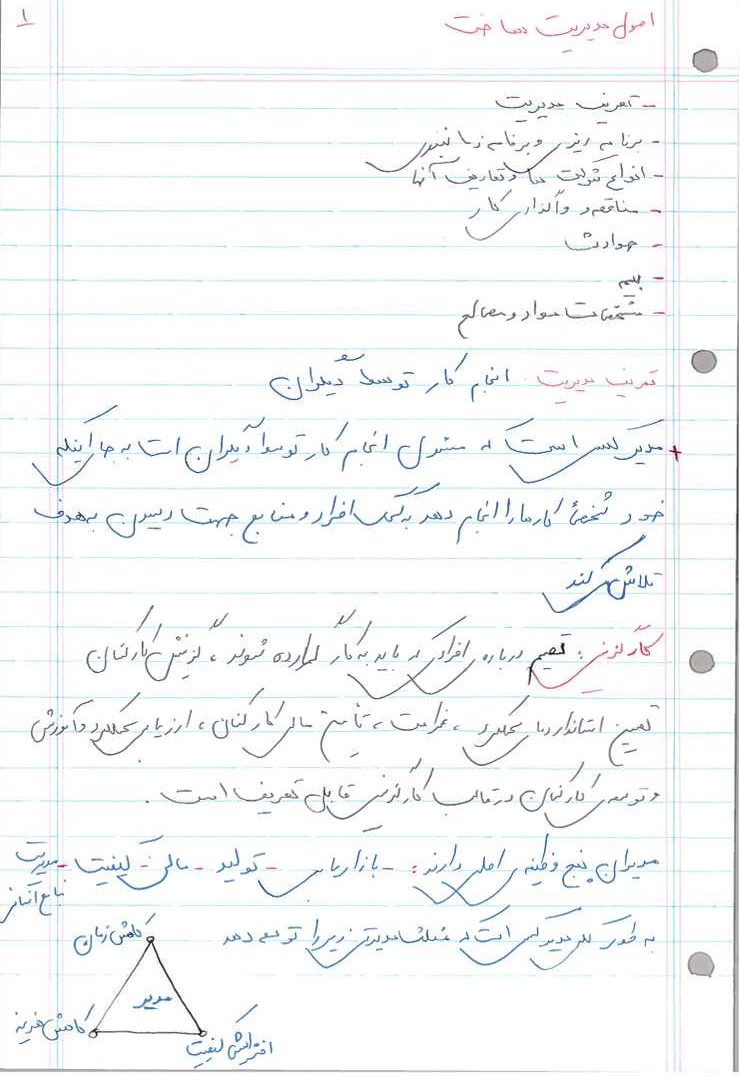 ۱
اصول مدیریت ساخت
- تعریف مدیریت
- برنامه ریزی و برنامه زمانبندی
- انواع شرکت ها و تعاریف آنها
- مناقصه و واگذاری کار
- حوادث
- بیمه
- مشخصات مواد و مصالح
تعریف مدیریت: انجام کار توسط دیگران
+ مدیر کسی است که مسئول انجام کار توسط دیگران است به جای اینکه
خود شخصاً کارها را انجام دهد به کمک افراد و منابع جهت رسیدن به هدف
تلاش کند
کارگزینی: تصمیم درباره افرادی که باید به کار گمارده شوند، گزینش کارکنان
تعیین استانداردهای عملکرد، غرامت، تأمین مالی کارکنان، ارزیابی عملکرد و آموزش
و توسعه ی کارکنان در قالب کارگزینی قابل تعریف است.
مدیران پنج وظیفه ی اصلی دارند: - بازاریابی - تولید - مالی - کیفیت - مدیریت
منابع انسانی
به طور کلی مدیر کسی است که مثلث مدیریتی زیر را توسعه دهد
کاهش زمان
مدیر
کاهش هزینه
افزایش کیفیت